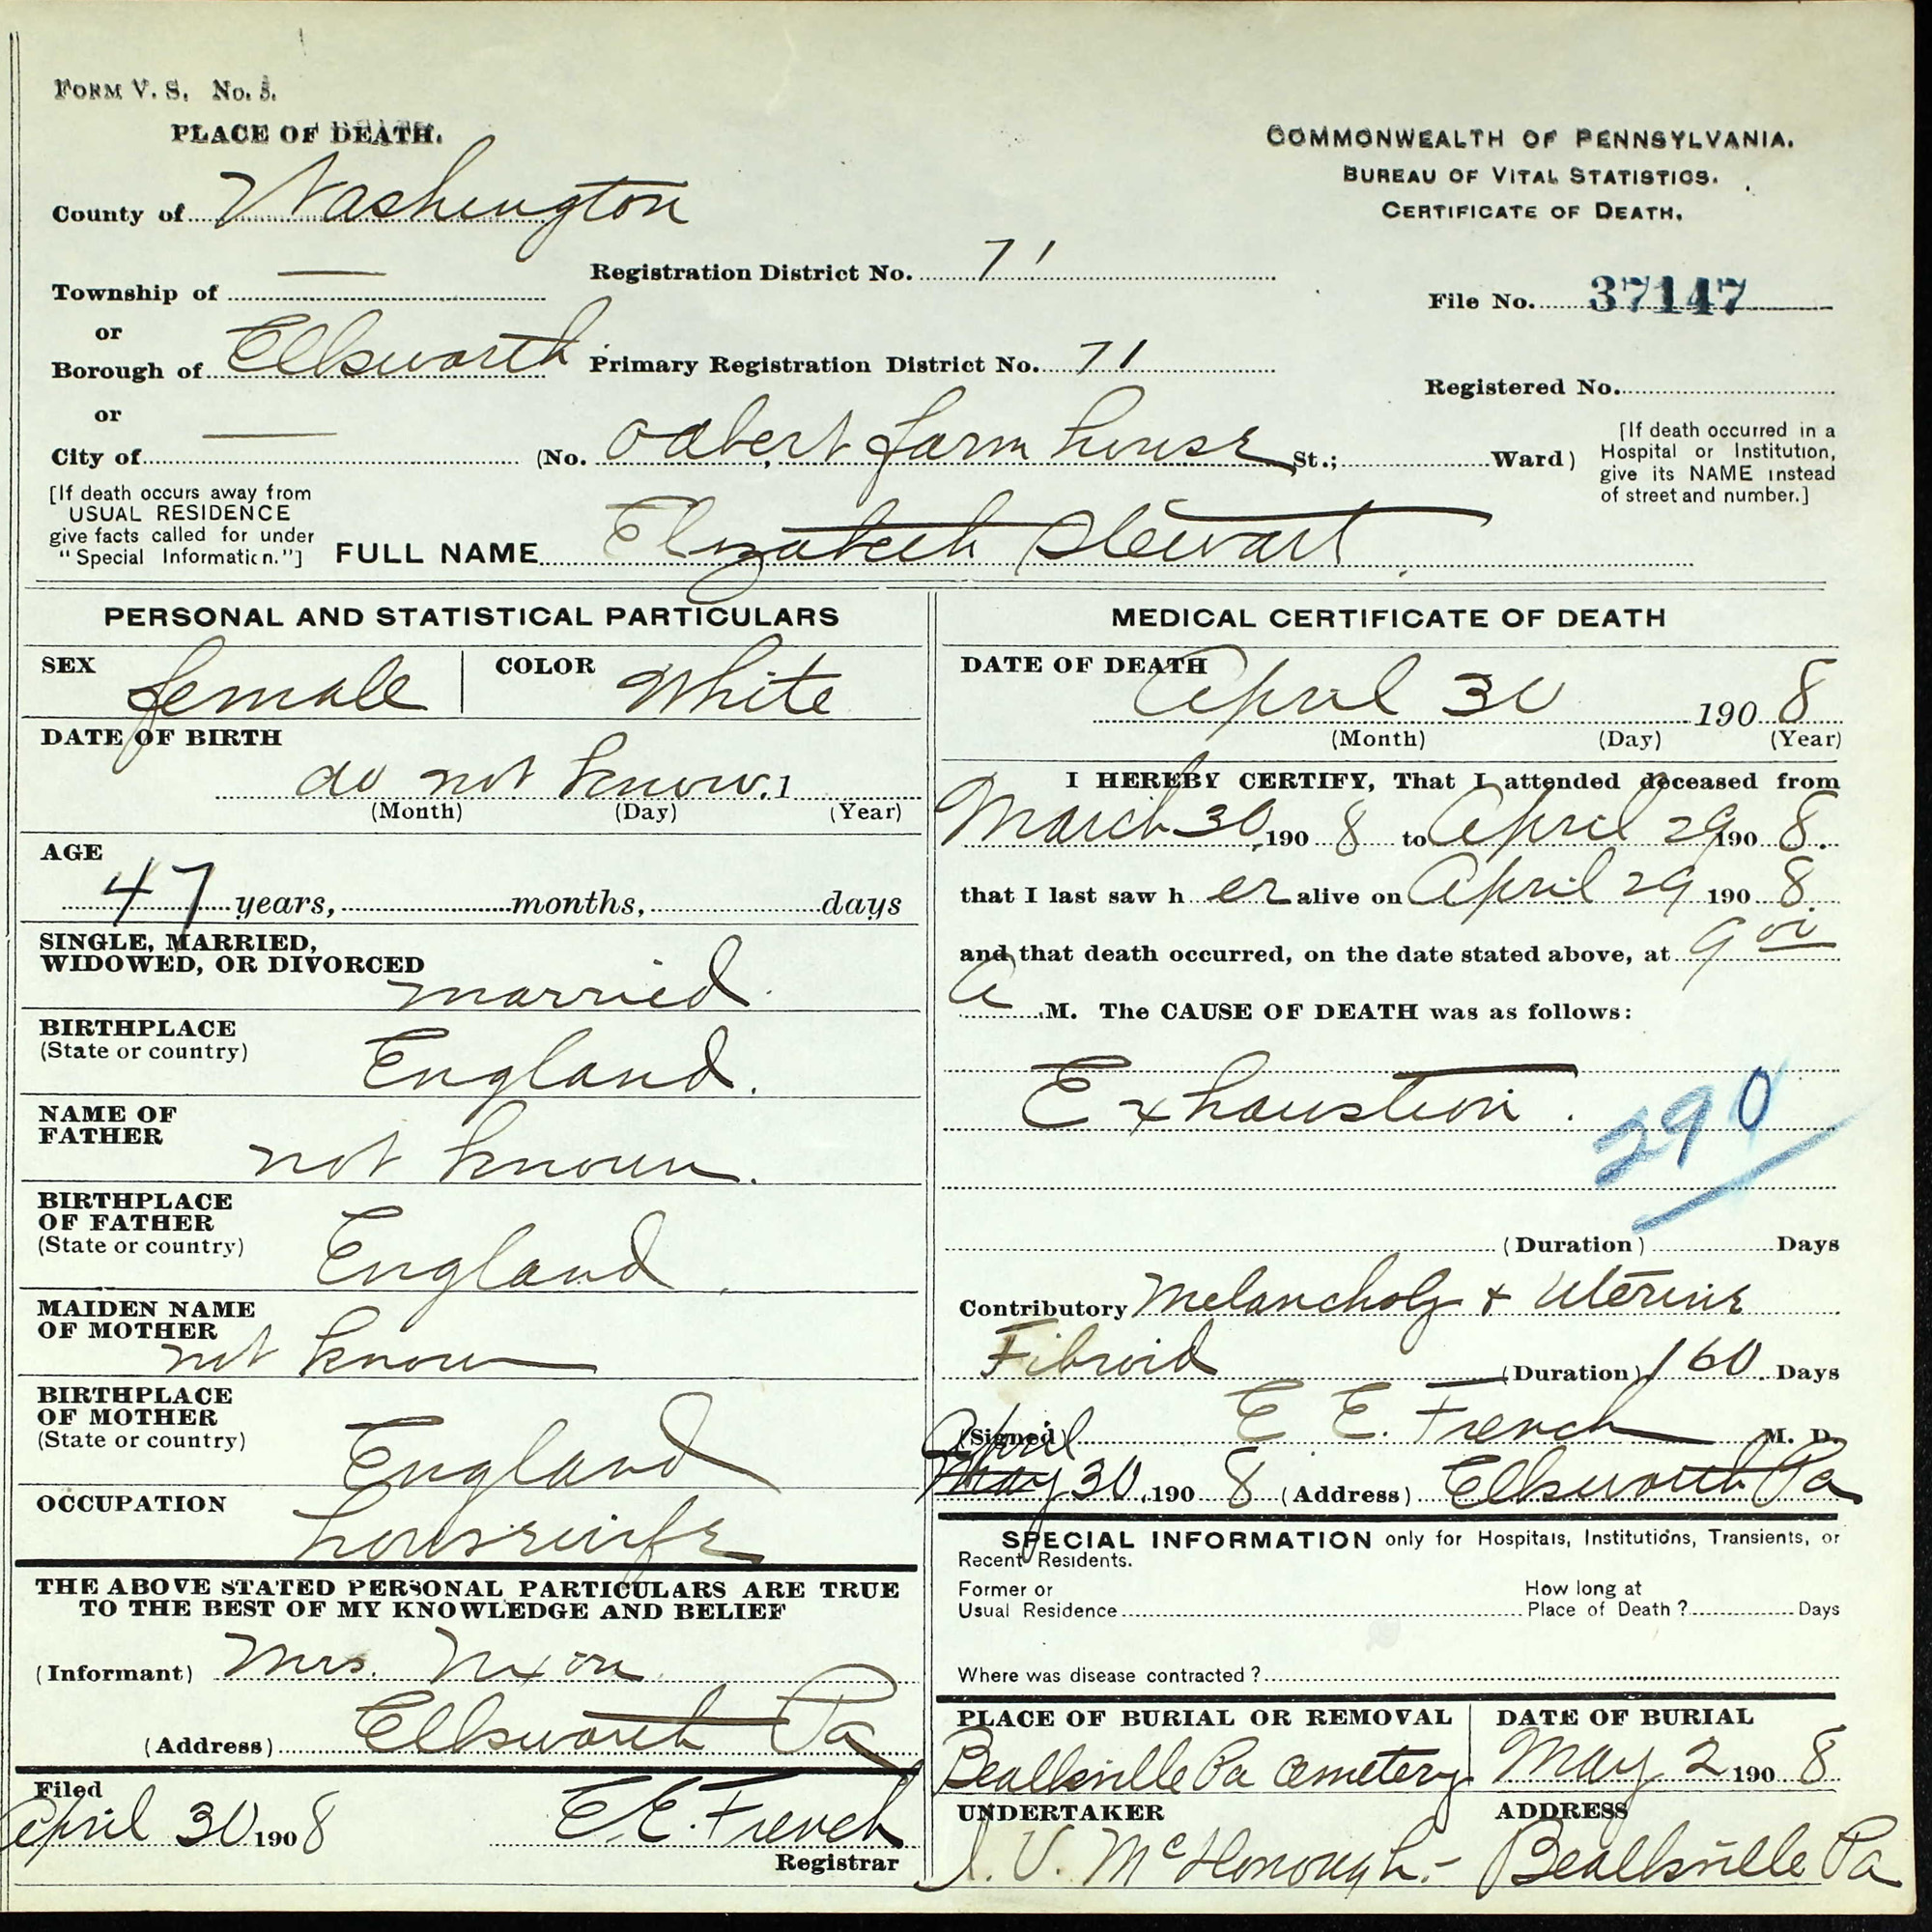 FORM V. S. No. 5.
PLACE OF DEATH.
County of Washington
Township of —
or
Borough of Ellsworth
or
City of —
Registration District No. 71
Primary Registration District No. 71
(No. Odbert farm house St.; Ward)
COMMONWEALTH OF PENNSYLVANIA.
BUREAU OF VITAL STATISTICS.
CERTIFICATE OF DEATH.
File No. 37147
Registered No.
[If death occurred in a
Hospital or Institution,
give its NAME instead
of street and number.]
[If death occurs away from
USUAL RESIDENCE
give facts called for under
"Special Information."]
FULL NAME Elizabeth Stewart
PERSONAL AND STATISTICAL PARTICULARS
SEX female COLOR White
DATE OF BIRTH
do not know. 1
(Month) (Day) (Year)
AGE
47 years, months, days
SINGLE, MARRIED,
WIDOWED, OR DIVORCED
married.
BIRTHPLACE
(State or country) England.
NAME OF
FATHER
not known.
BIRTHPLACE
OF FATHER
(State or country) England.
MAIDEN NAME
OF MOTHER
not known
BIRTHPLACE
OF MOTHER
(State or country) England
OCCUPATION
housewife
THE ABOVE STATED PERSONAL PARTICULARS ARE TRUE
TO THE BEST OF MY KNOWLEDGE AND BELIEF
(Informant) Mrs. Nixon
(Address) Ellsworth Pa
Filed
April 30 1908 E. E. French
Registrar
MEDICAL CERTIFICATE OF DEATH
DATE OF DEATH
April 30 1908
(Month) (Day) (Year)
I HEREBY CERTIFY, That I attended deceased from
March 30, 1908 to April 29 1908.
that I last saw her alive on April 29 1908.
and that death occurred, on the date stated above, at 9 00
A M. The CAUSE OF DEATH was as follows:
Exhaustion.
290
(Duration) Days
Contributory Melancholy + Uterine
Fibroid (Duration) 160 Days
(Signed) E E. French M. D.
April
May 30, 1908 (Address) Ellsworth Pa
SPECIAL INFORMATION only for Hospitals, Institutions, Transients, or
Recent Residents.
Former or
Usual Residence
How long at
Place of Death? Days
Where was disease contracted?
PLACE OF BURIAL OR REMOVAL
Beallsville Pa Cemetery
DATE OF BURIAL
May 2 1908
UNDERTAKER
J. V. McDonough.-
ADDRESS
Beallsville Pa